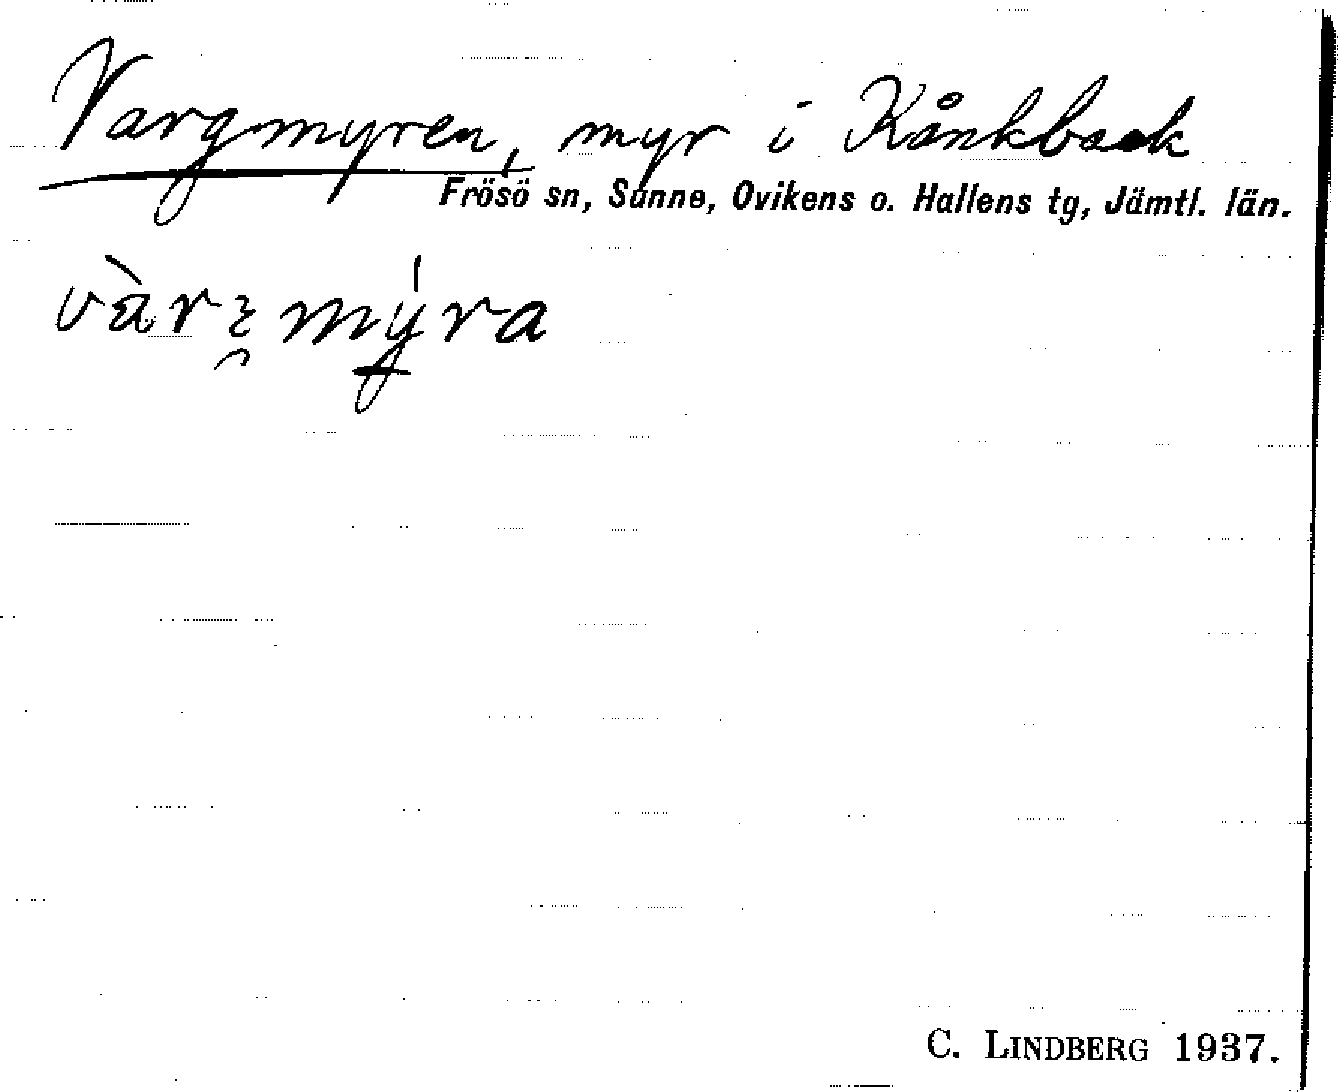 Vargmyren, myr i Kånkback
Frösö sn, Sunne, Ovikens o. Hallens tg, Jämtl. län.
C. LINDBERG 1937.